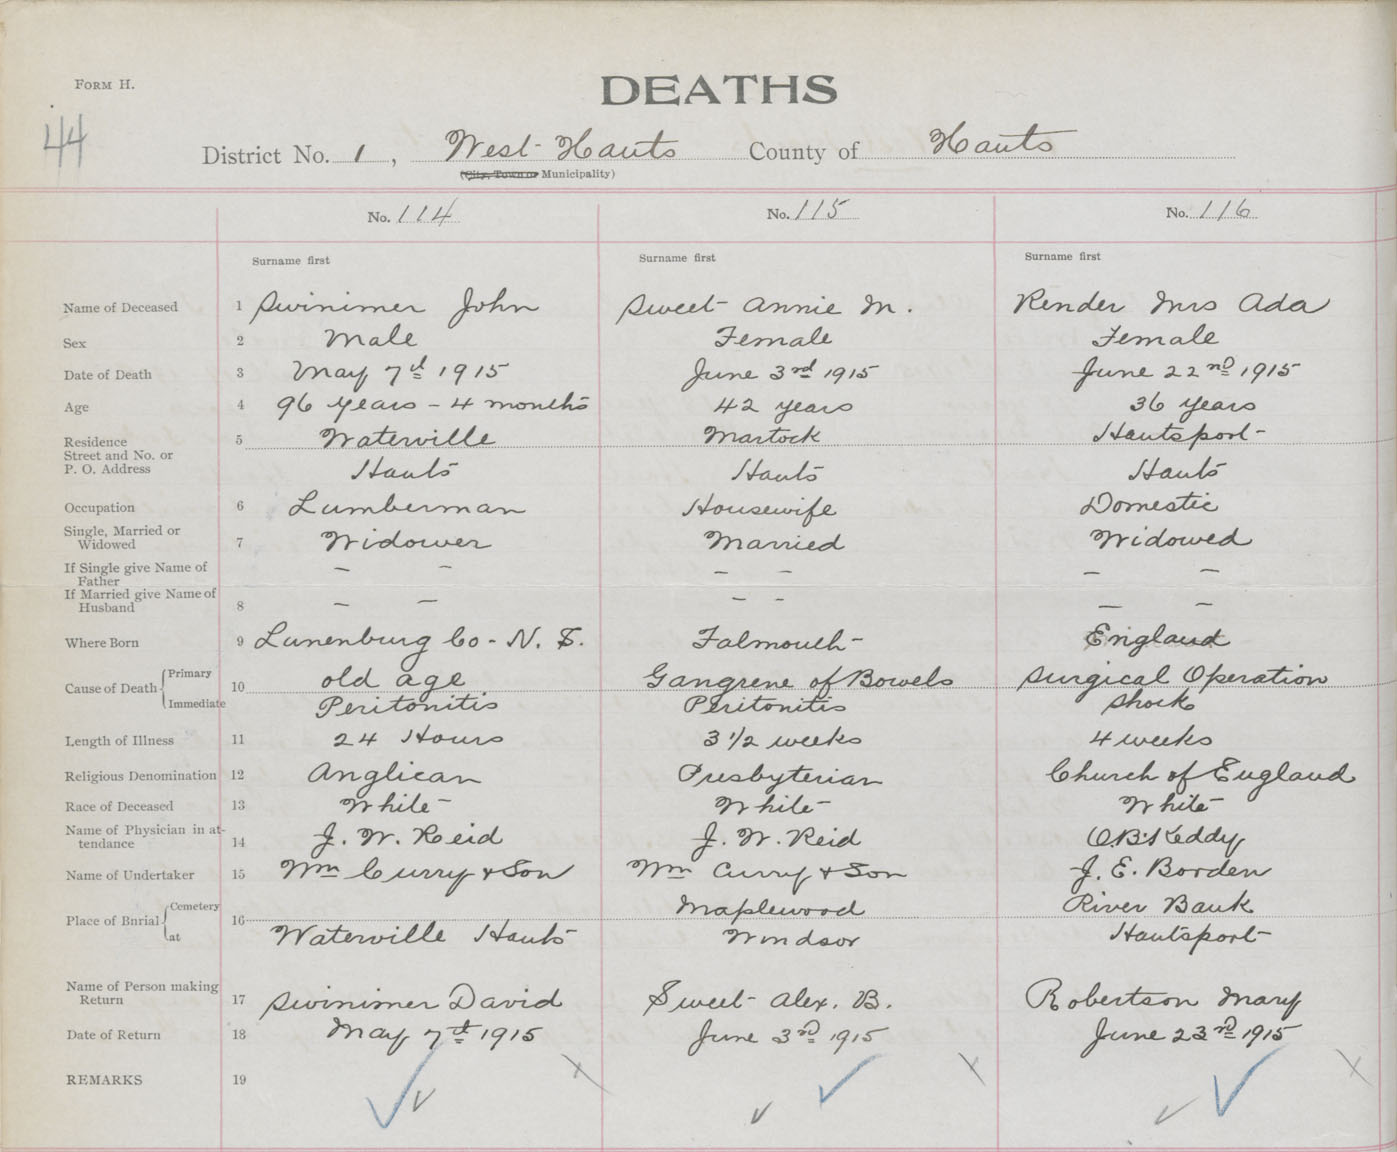 Form H.
DEATHS
44
District No. 1, West Hants County of Hants
(City, Town or Municipality)
No. 114 No. 115 No. 116
Surname first Surname first Surname first
Name of Deceased 1 Swinimer John Sweet Annie M. Render Mrs Ada
Sex 2 Male Female Female
Date of Death 3 May 7th 1915 June 3rd 1915 June 22nd 1915
Age 4 96 years - 4 months 42 years 36 years
Residence 5 Waterville Martock Hantsport
Street and No. or
P. O. Address Hants Hants Hants
Occupation 6 Lumberman Housewife Domestic
Single, Married or
Widowed 7 Widower Married Widowed
If Single give Name of
Father — — — — — —
If Married give Name of
Husband 8 — — — — — —
Where Born 9 Lunenburg Co - N. S. Falmouth England
Cause of Death Primary 10 old age Gangrene of Bowels Surgical Operation
Immediate Peritonitis Peritonitis Shock
Length of Illness 11 24 Hours 3 1/2 weeks 4 weeks
Religious Denomination 12 Anglican Presbyterian Church of England
Race of Deceased 13 White White White
Name of Physician in at-
tendance 14 J. W. Reid J. W. Reid O.B. Keddy
Name of Undertaker 15 Wm Curry & Son Wm Curry & Son J. E. Borden
Place of Bnrial Cemetery 16 Maplewood River Bank
at Waterville Hants Windsor Hantsport
Name of Person making
Return 17 Swinimer David Sweet Alex. B. Robertson Mary
Date of Return 18 May 7th 1915 June 3rd 1915 June 23rd 1915
REMARKS 19